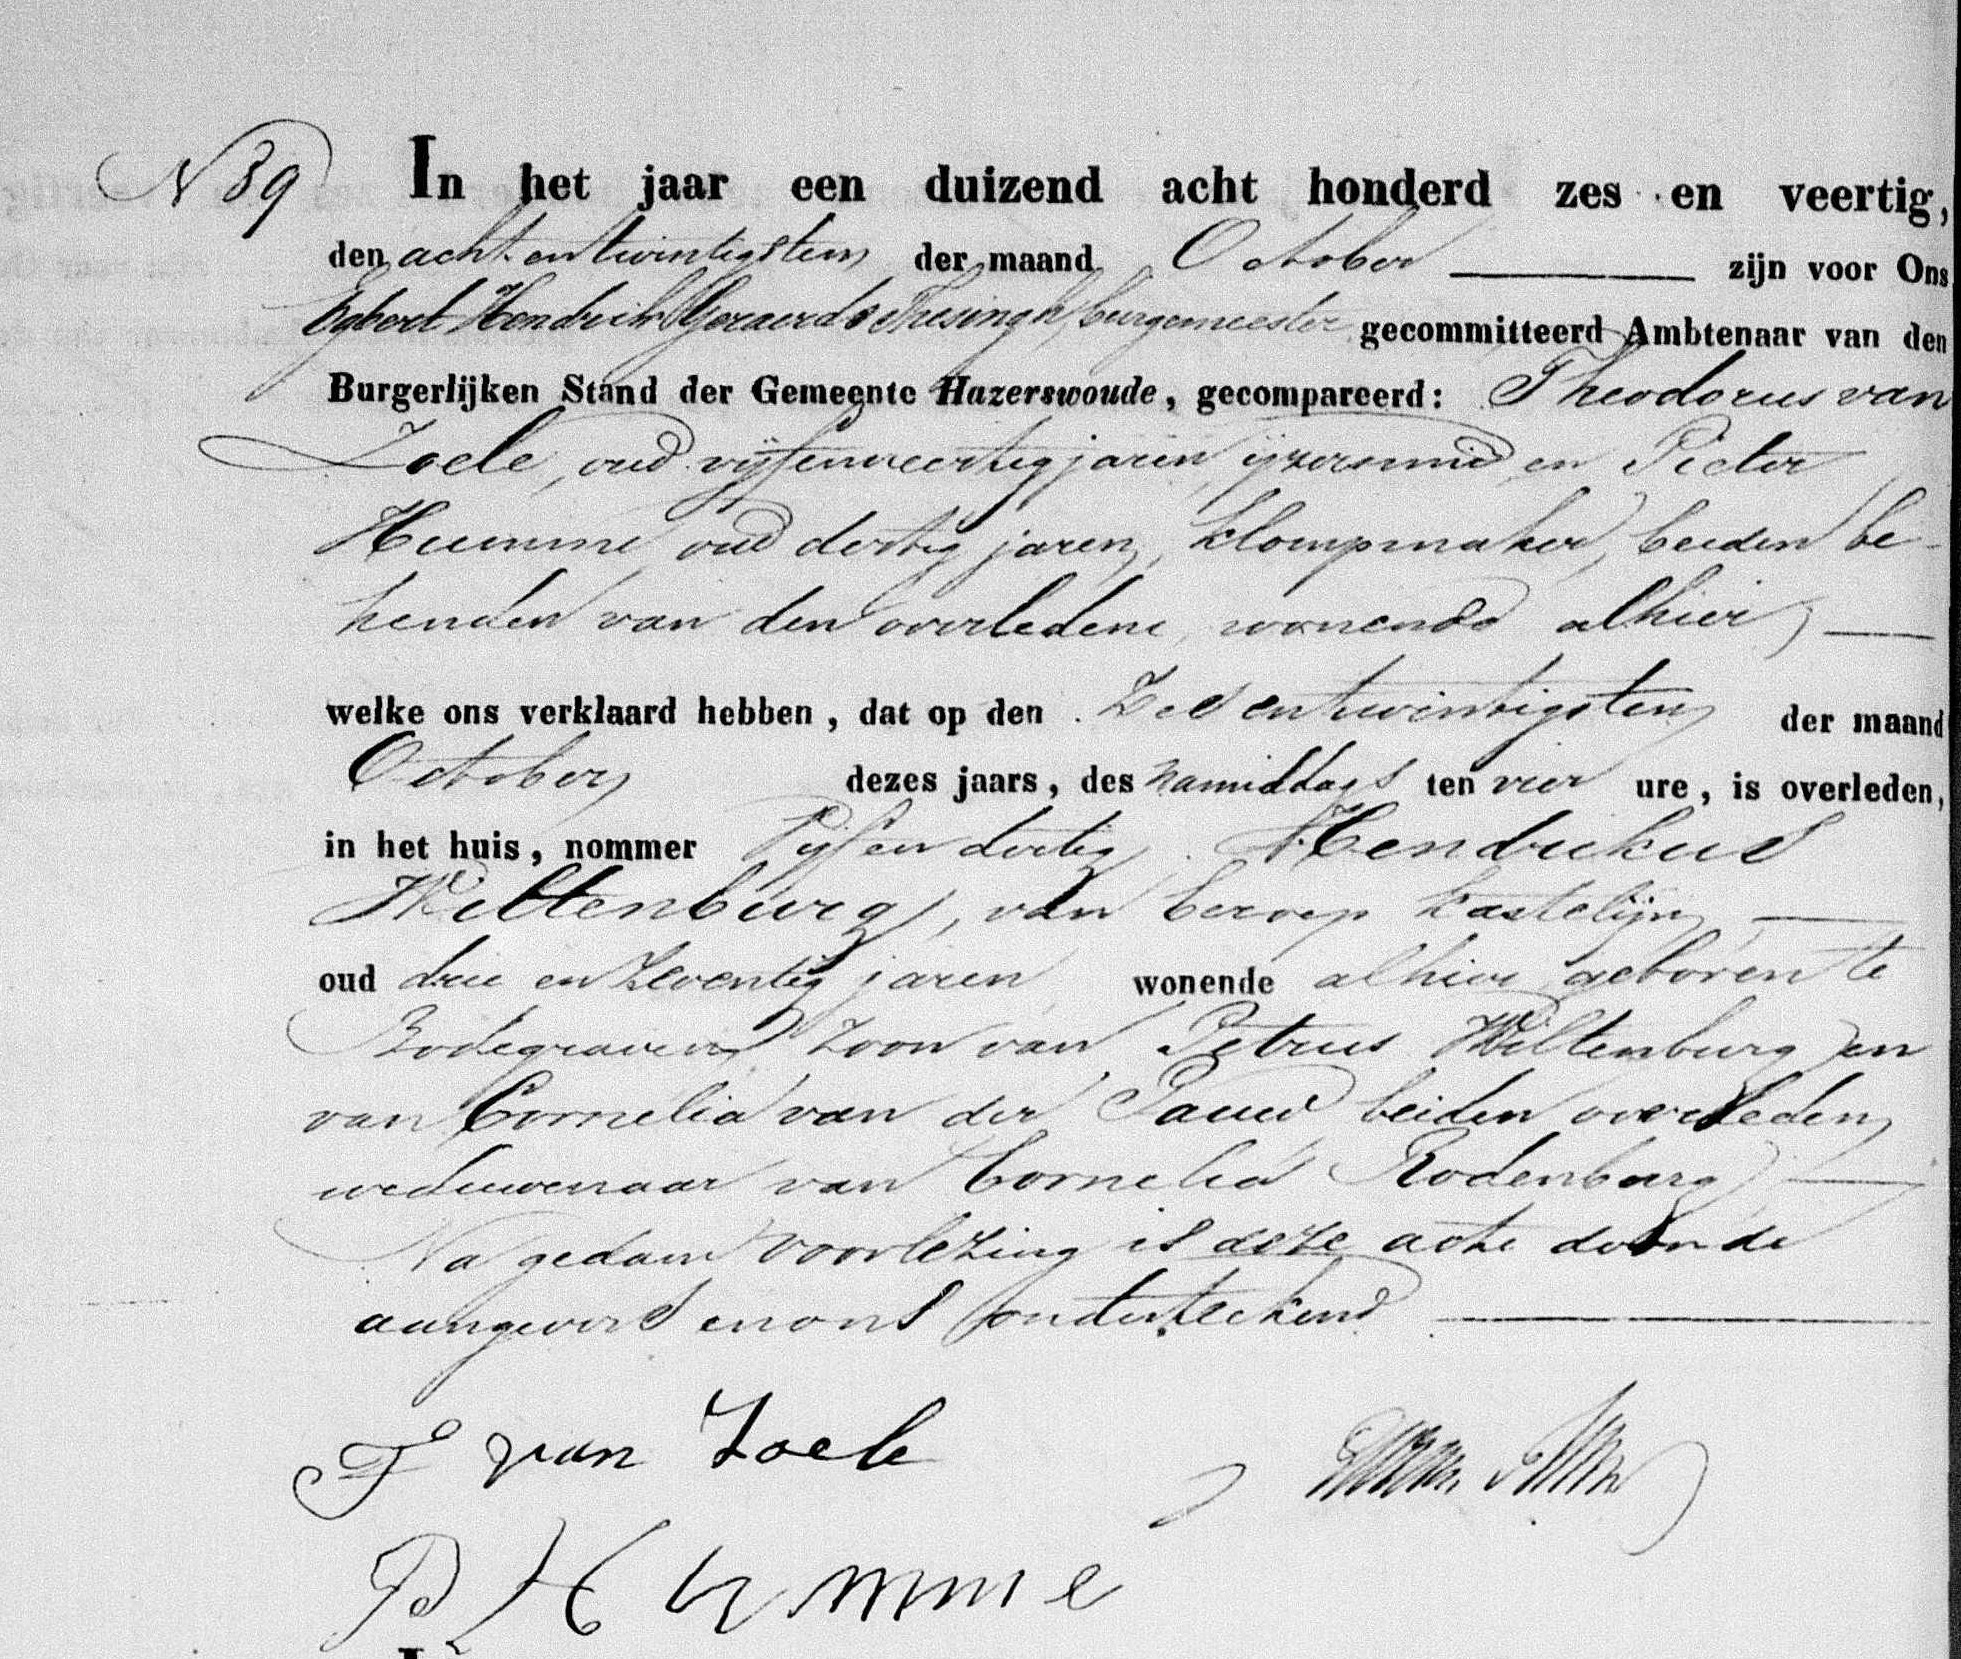 N 89 In het jaar een duizend acht honderd zes en veertig,
den achtentwintigsten der maand October zijn voor Ons
Egbert Hendrik Geraerds Thesingh, burgemeester gecommitteerd Ambtenaar van den
Burgerlijken Stand der Gemeente Hazerswoude, gecompareerd: Theodorus van
Zoele, oud vijfenveertig jaren, ijzersmid en Pieter
Humme oud dertig jaren, klompmaker, beiden be-
kenden van den overledene, wonende alhier,
welke ons verklaard hebben, dat op den Zes entwintigsten der maand
October dezes jaars, des namiddags ten vier ure, is overleden,
in het huis, nommer Vijf en dertig Hendrikus
Wiltenburg, van beroep kastelijn
oud drie en zeventig jaren wonende alhier geboren te
Bodegraven Zoon van Petrus Wiltenburg en
van Cornelia van der Pauw beiden overleden,
weduwenaar van Cornelia Rodenburg
Na gedane voorlezing is deze acte door de
aangevers en ons onderteekend
T van Zoele
P Humme